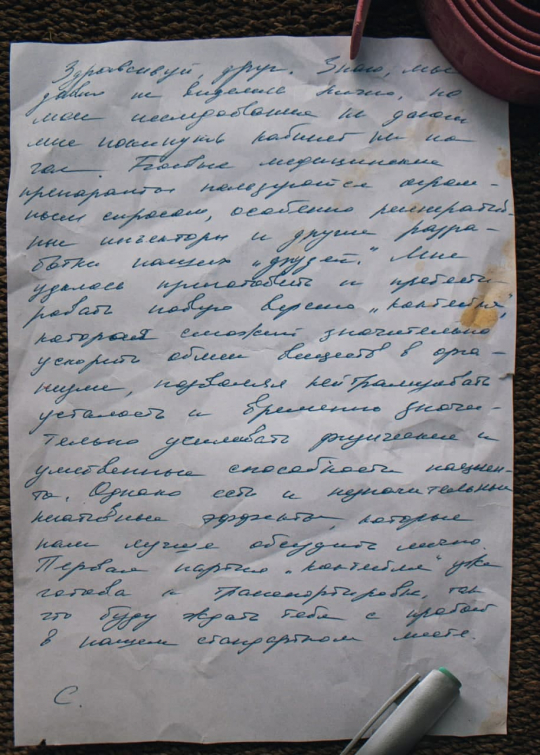 Здравствуй, друг. Знаю, мы
давно не виделись лично, но
мои исследования не дают
мне покинуть кабинет ни на
час. Боевые медицинские
препараты пользуются огром-
ным спросом, особенно регенератив-
ные инъекторы и другие разра-
ботки наших „друзей." Мне
удалось приготовить и протести-
ровать новую версию „коктейля",
которая сможет значительно
ускорить обмен веществ в орга-
низме, позволяя нейтрализовать
усталость и временно значи-
тельно усиливать физические и
умственные способности пациен-
та. Однако есть и незначительные
негативные эффекты, которые
нам лучше обсудить лично
Первая партия „коктейля" уже
готова к транспортировке, так
что буду ждать тебя с
в нашем стандартном месте.
С.